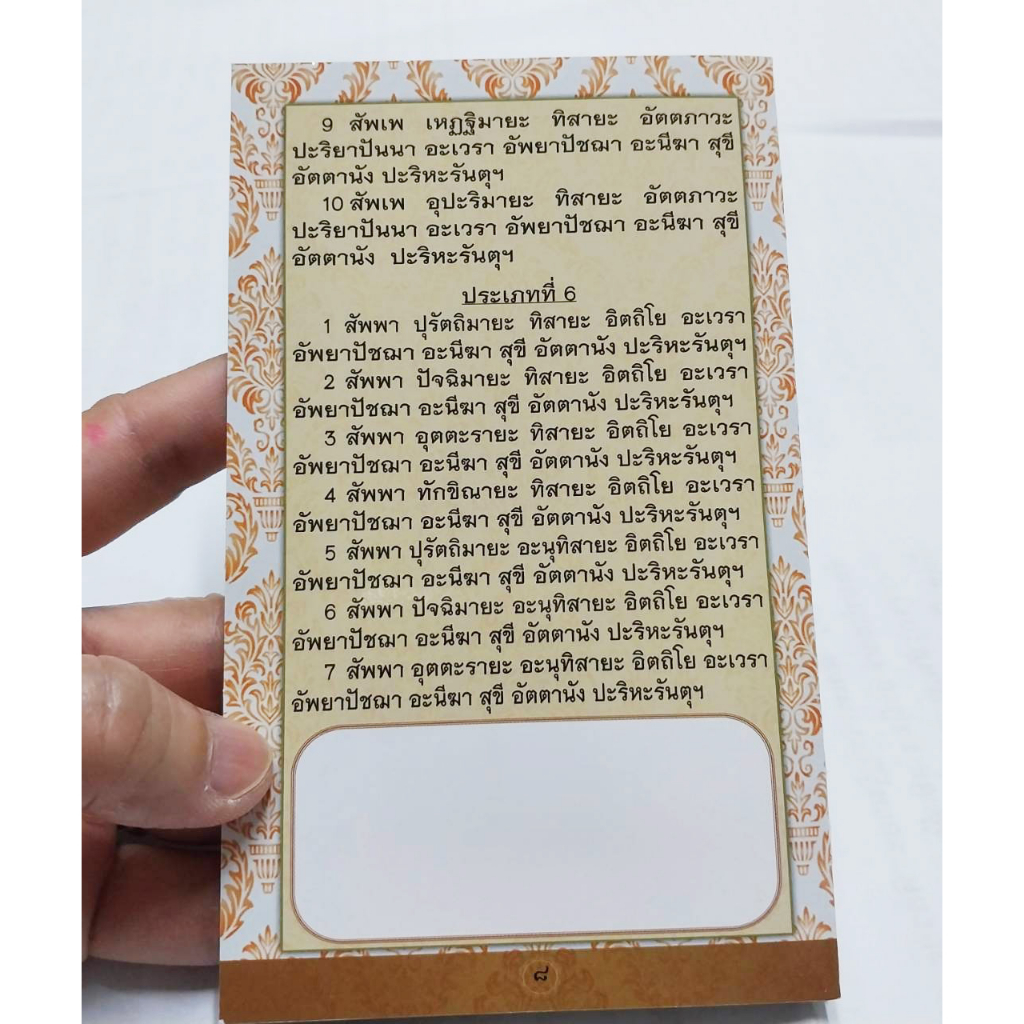 9 สัพเพ เหฏฐิมายะ ทิสายะ อัตตภาวะ
ปะริยาปันนา อะเวรา อัพยาปัชฌา อะนีฆา สุขี
อัตตานัง ปะริหะรันตุฯ
10 สัพเพ อุปะริมายะ ทิสายะ อัตตภาวะ
ปะริยาปันนา อะเวรา อัพยาปัชฌา อะนีฆา สุขี
อัตตานัง ปะริหะรันตุฯ
ประเภทที่ 6
1 สัพพา ปุรัตถิมายะ ทิสายะ อิตถิโย อะเวรา
อัพยาปัชฌา อะนีฆา สุขี อัตตานัง ปะริหะรันตุฯ
2 สัพพา ปัจฉิมายะ ทิสายะ อิตถิโย อะเวรา
อัพยาปัชฌา อะนีฆา สุขี อัตตานัง ปะริหะรันตุฯ
3 สัพพา อุตตะรายะ ทิสายะ อิตถิโย อะเวรา
อัพยาปัชฌา อะนีฆา สุขี อัตตานัง ปะริหะรันตุฯ
4 สัพพา ทักขิณายะ ทิสายะ อิตถิโย อะเวรา
อัพยาปัชฌา อะนีฆา สุขี อัตตานัง ปะริหะรันตุฯ
5 สัพพา ปุรัตถิมายะ อะนุทิสายะ อิตถิโย อะเวรา
อัพยาปัชฌา อะนีฆา สุขี อัตตานัง ปะริหะรันตุฯ
6 สัพพา ปัจฉิมายะ อะนุทิสายะ อิตถิโย อะเวรา
อัพยาปัชฌา อะนีฆา สุขี อัตตานัง ปะริหะรันตุฯ
7 สัพพา อุตตะรายะ อะนุทิสายะ อิตถิโย อะเวรา
อัพยาปัชฌา อะนีฆา สุขี อัตตานัง ปะริหะรันตุฯ
๘